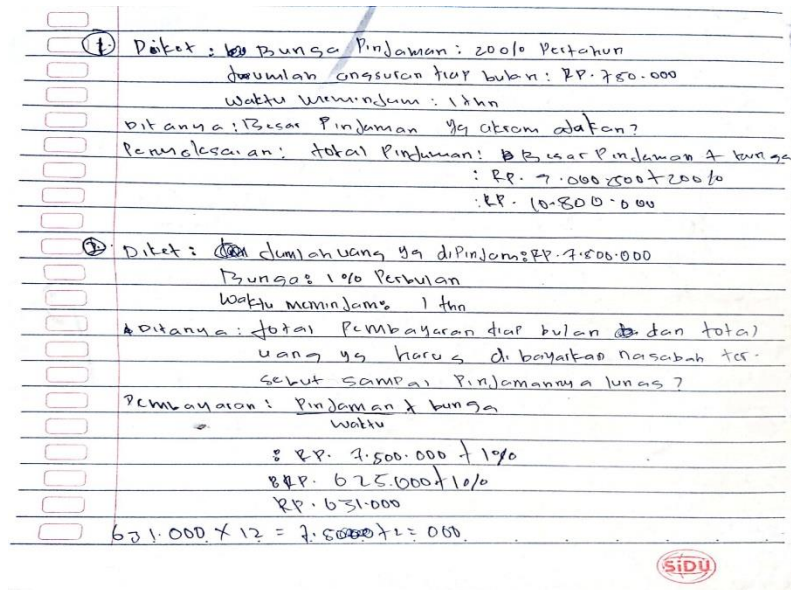 1. Diket : Bunga Pinjaman : 20% Pertahun
Jumlah angsuran tiap bulan : RP. 750.000
Waktu meminjam : 1 thn
Ditanya : Besar Pinjaman yg akan adakan?
Penyelesaian : total Pinjaman : Besar Pinjaman + bunga
: RP. 9.000.000 + 20%
: RP. 10.800.000
2. Diket : Jumlah uang yg diPinjam : RP. 7.500.000
Bunga : 1% Perbulan
Waktu meminjam : 1 thn
Ditanya : total Pembayaran tiap bulan dan total
uang yg harus dibayarkan nasabah ter-
sebut sampai Pinjamannya lunas ?
Pembayaran : Pinjaman + bunga
Waktu
: RP. 7.500.000 + 1%
RP. 625.000 + 1%
RP. 631.000
631.000 X 12 =
SiDU